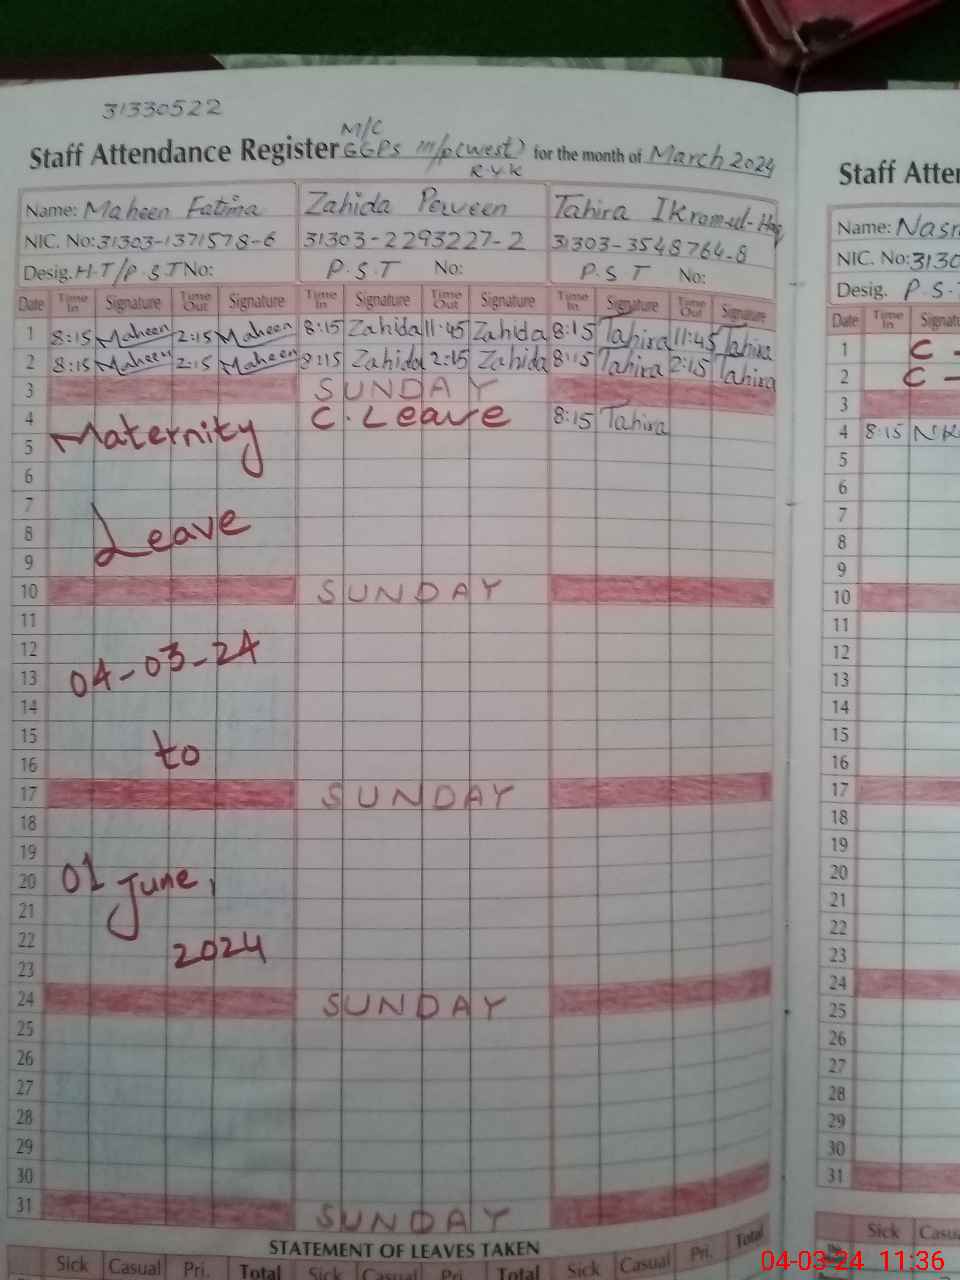 31330522
M/C
Staff Attendance Register GGPS m/p(west) for the month of March 2024
R.Y.K
Name: Maheen Fatima Zahida Perveen Tahira IKram-ul-Haq
NIC. No: 31303-1371578-6 31303-2293227-2 31303-3548764-8
Desig. H-T/P.S.T No: P.S.T No: P.S.T No:
Date Time In Signature Time Out Signature Time In Signature Time Out Signature Time In Signature Time Out Signature
1 8:15 Maheen 2:15 Maheen 8:15 Zahida 11:45 Zahida 8:15 Tahira 11:45 Tahira
2 8:15 Maheen 2:15 Maheen 8:15 Zahida 2:15 Zahida 8:15 Tahira 2:15 Tahira
3 SUNDAY
4 C. Leave 8:15 Tahira
5 Maternity
6
7
8 Leave
9
10 SUNDAY
11
12
13 04-03-24
14
15
16 to
17 SUNDAY
18
19
20 01 June,
21
22
23 2024
24 SUNDAY
25
26
27
28
29
30
31 SUNDAY
STATEMENT OF LEAVES TAKEN
Sick Casual Pri. Total Sick Casual Pri. Total Sick Casual Pri. Total
Staff Atten
Name: Nasr
NIC. No: 3130
Desig. P.S.
Date Time In Signatu
1 C -
2 C -
3
4 8:15
5
6
7
8
9
10
11
12
13
14
15
16
17
18
19
20
21
22
23
24
25
26
27
28
29
30
31
Sick Casu
04-03-24 11:36